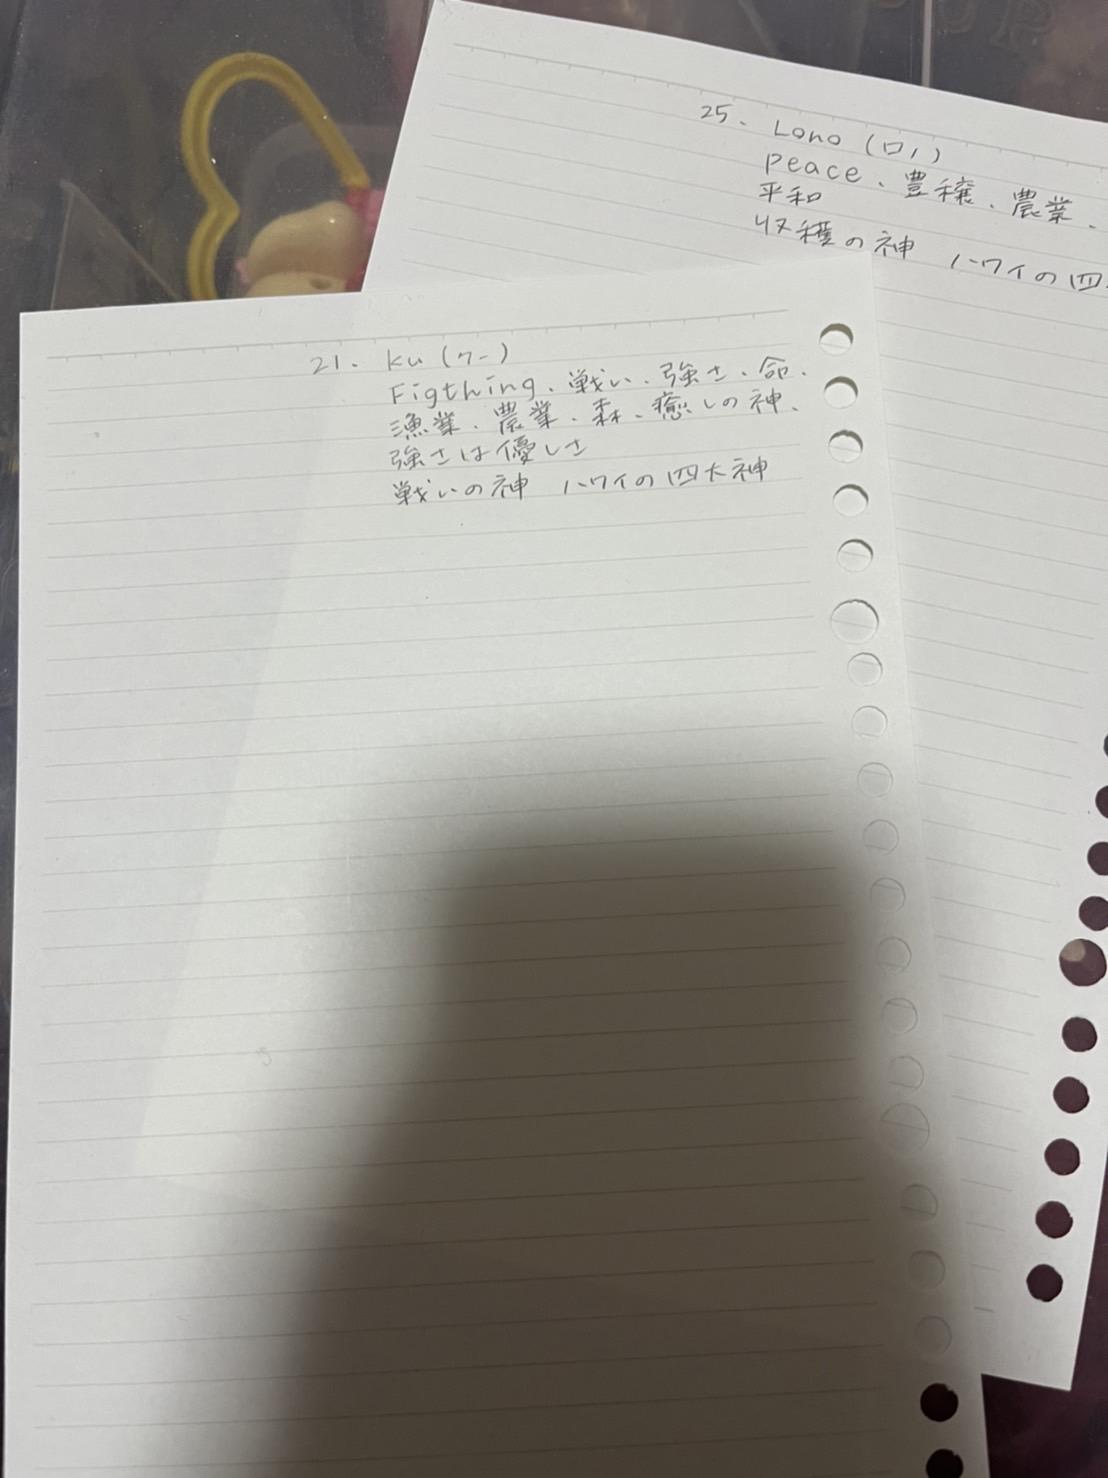 25. Lono (ロノ)
peace、豊穣、農業、
平和
収穫の神 ハワイの四
21. Ku (クー)
Figthing、戦い、強さ、命、
漁業、農業、森、癒しの神、
強さは優しさ
戦いの神 ハワイの四大神